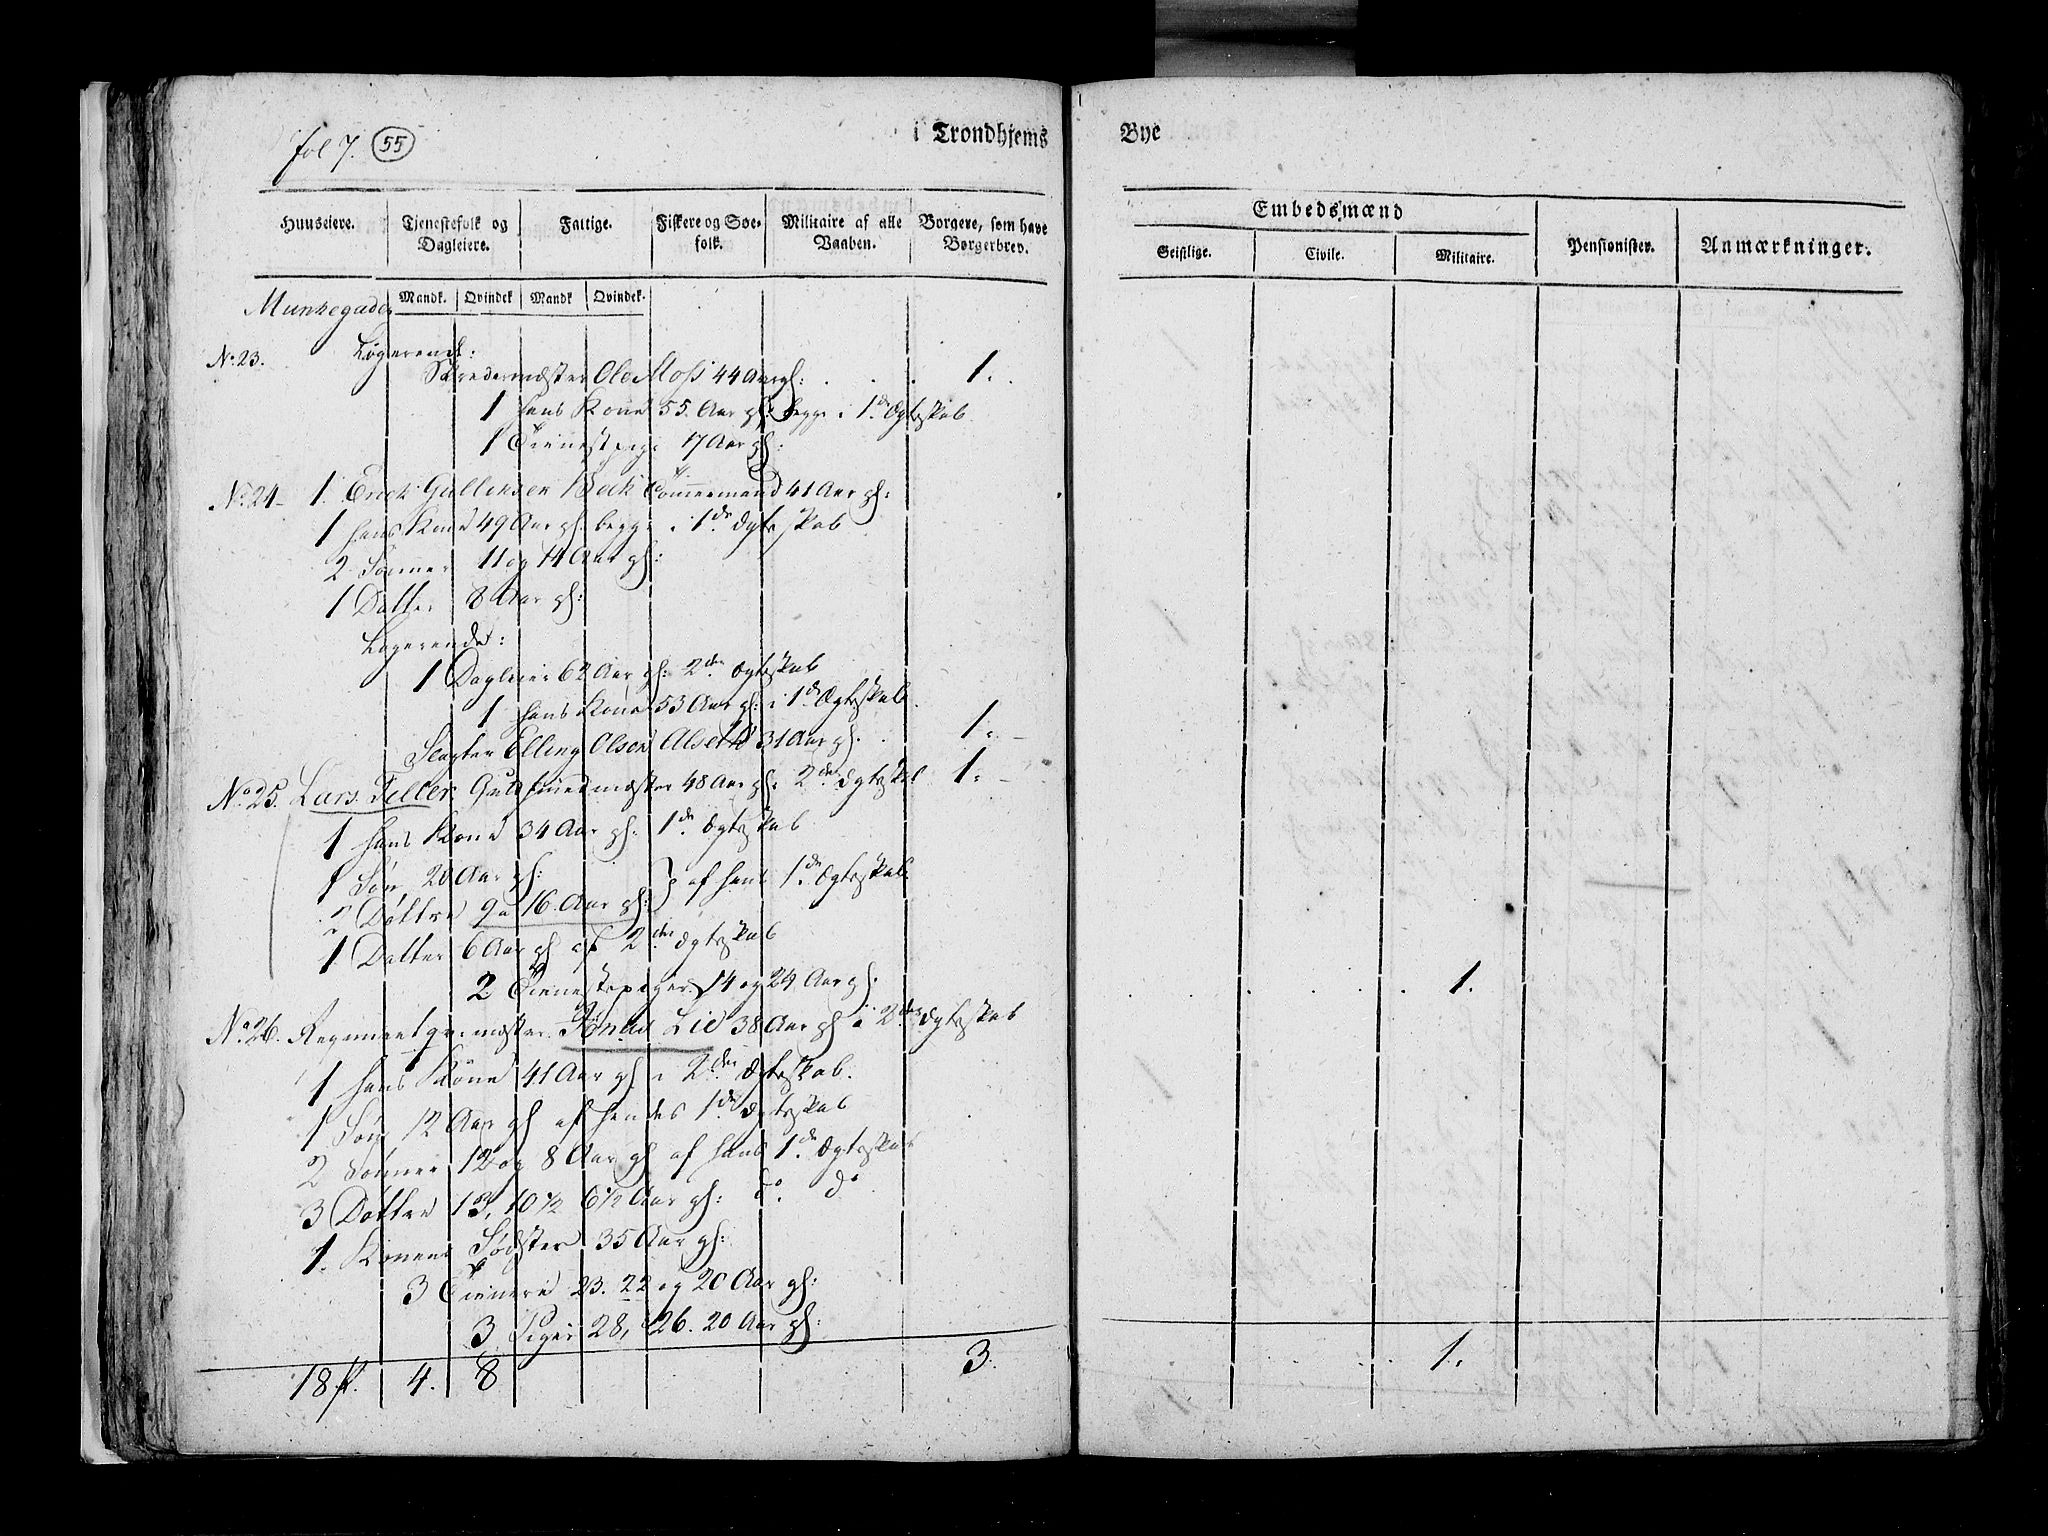 fol 7. 55
i Trondhjems Bye
Huuseiere. Tjenestefolk og Dagleiere. Fattige. Fiskere og Søefolk. Militaire af alle Vaaben. Borgere, som have Borgerbrev. Embedsmænd Pensionister. Anmærkninger.
Geistlige. Civile. Militaire.
Mandk. Qvindek Mandk Qvindek.
Munkegaden
No. 23. Logerende:
Skredermæster Ole Moss 44 Aar gl: . . . 1.
1 hans Kone 55 Aar gl: begge i 1de Ægteskab
1 Tienestpige 17 Aar gl:
No. 24 1. Erick Gullensen Beck Tømmermand 41 Aar gl:
1 hans Kone 49 Aar gl. begge i 1de Ægteskab
2 Sønner 11 og 14 Aar gl:
1 Datter 8 Aar gl:
Logerende:
1 Dagleier 62 Aar gl: 2den Ægteskab
1 hans Kone 53 Aar gl: i 1de Ægteskab.
Slagter Elling Olsen Alseth 31 Aar gl. 1.
No. 25. Lars Feller Guldsmedmæster 48 Aar gl: 2det Ægteskab 1.
1 hans Kone 34 Aar gl: 1de Ægteskab
1 Søn 20 Aar gl: } af hans 1de Ægteskab.
2 Døttre 9 og 16 Aar gl:
1 Datter 6 Aar gl af 2det Ægteskab
2 Tienestepiger 14 og 24 Aar gl.
No. 26. Regimentqvmæster Jonas Lie 38 Aar gl i 2det Ægteskab . . . 1.
1 hans Kone 41 Aar gl i 2det Ægteskab.
1 Søn 12 Aar gl af hendes 1de Ægteskab
2 Sønner 12 og 8 Aar gl af hans 1de Ægteskab
3 Døttre 13, 10 1/2 6 1/2 Aar gl: do. do
1. Konens Sødster 35 Aar gl:
3 Tienere 23. 22 og 20 Aar gl:
3 Piger 28, 26. 20 Aar gl:
18 4. 8 3. 1.